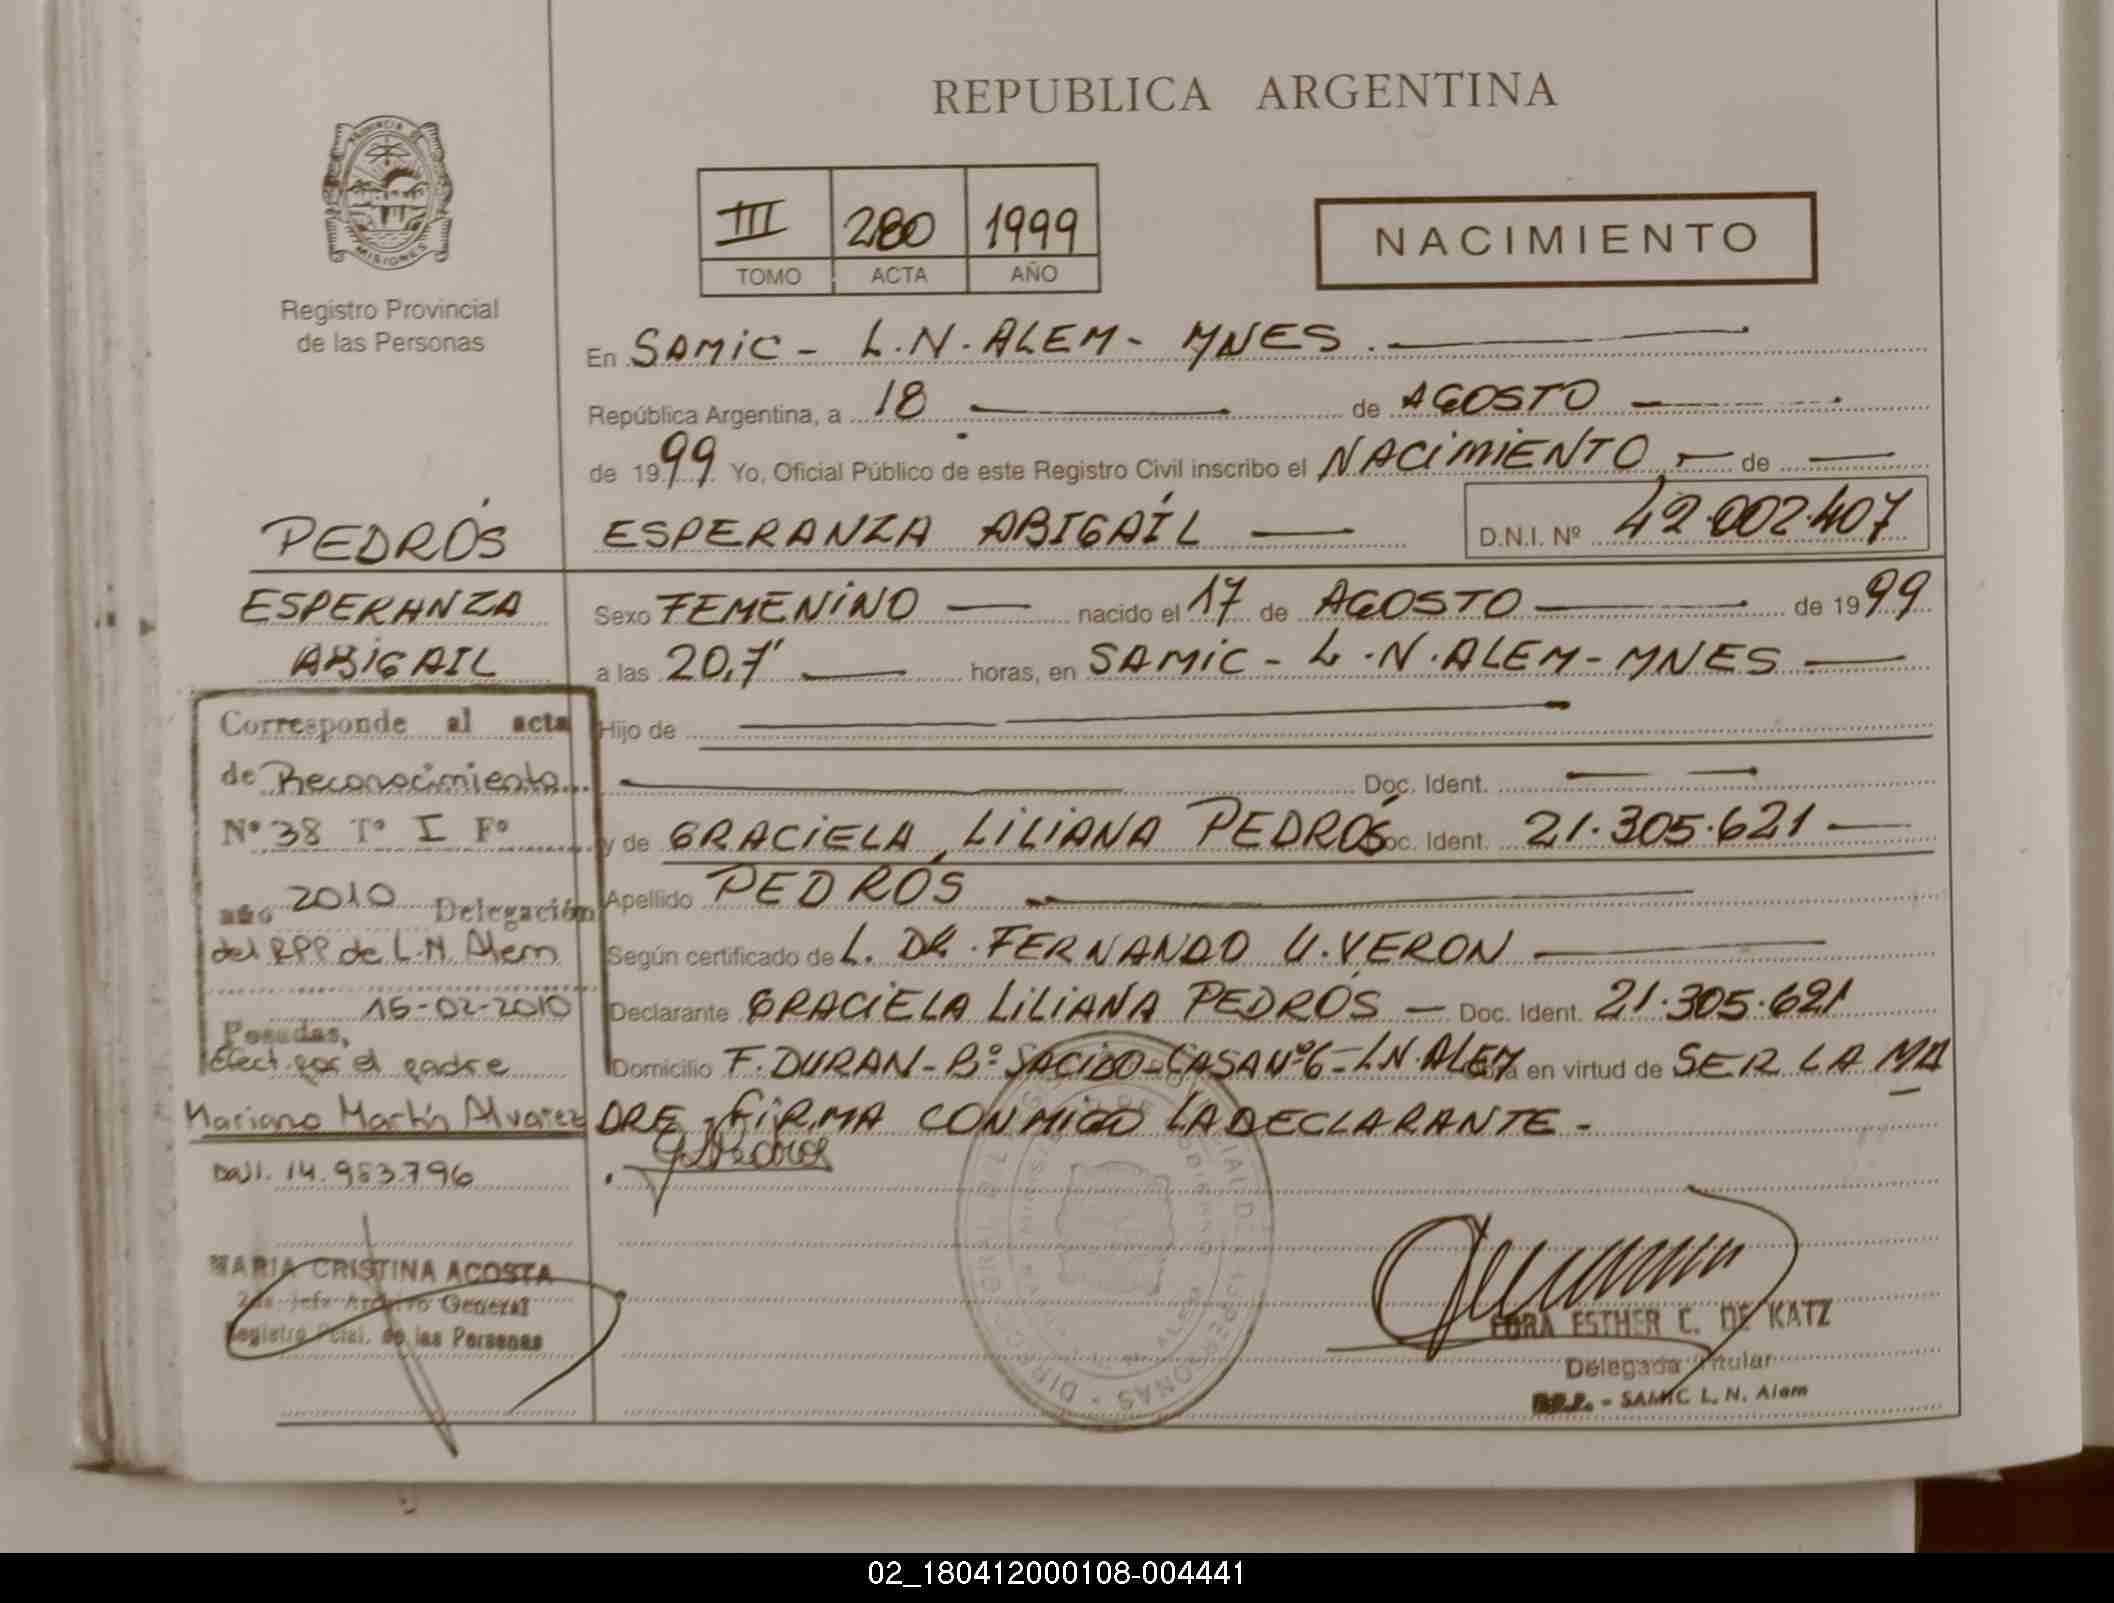 REPUBLICA ARGENTINA
PROVINCIA DE
MISIONES
Registro Provincial
de las Personas
III 280 1999
TOMO ACTA AÑO
NACIMIENTO
En SAMIC - L.N. ALEM - MNES.
República Argentina, a 18 de AGOSTO
de 1999 Yo, Oficial Público de este Registro Civil inscribo el NACIMIENTO de
ESPERANZA ABIGAÍL D.N.I. Nº 42.002.407
Sexo FEMENINO nacido el 17 de AGOSTO de 1999
a las 20,7' horas, en SAMIC - L.N. ALEM - MNES
Hijo de
Doc. Ident.
y de GRACIELA LILIANA PEDRÓS Doc. Ident. 21.305.621
Apellido PEDRÓS
Según certificado de L. DR. FERNANDO U. VERON
Declarante GRACIELA LILIANA PEDRÓS - Doc. Ident. 21.305.621
Domicilio F. DURAN - Bº SACIDO - CASA Nº 6 - L.N. ALEM en virtud de SER LA MA
DRE - FIRMA CONMIGO LA DECLARANTE -
ESTHER C. DE KATZ
Delegada Titular
- SAMIC L. N. Alem
PEDRÓS
ESPERANZA
ABIGAIL
Corresponde al acta
de Reconocimiento
Nº 38 Tº I Fº
año 2010 Delegación
del RPP de L.N. Alem
Posadas, 16-02-2010
Efect. por el padre
Mariano Martín Alvarez
DNI. 14.983.796
MARIA CRISTINA ACOSTA
2da Jefe Archivo General
Registro Pcial. de las Personas
02_180412000108-004441